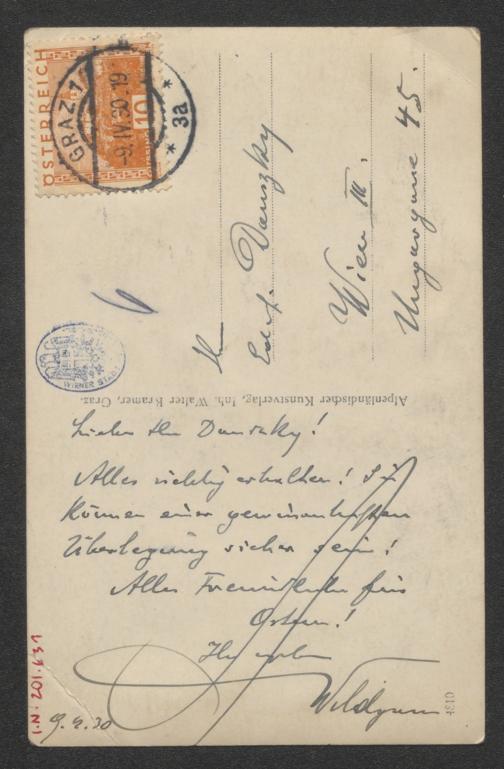 ÖSTERREICH
10
GRAZ 1
-9.IV.30.19
* 3a *
Eduf. Danszky
Wien III.
Ungargasse 45.
WIENER STADT
Alpenländischer Kunstverlag, Inh. Walter Kramer, Graz.
Lieber Herr Danszky!
Alles richtig erhalten! Sie
können einer gewissenhaften
Überlegung sicher sein!
Alles Freundliche fürs
Ostern!
Ihr
Wildgans
9.4.30
4810
I.N: 201.631